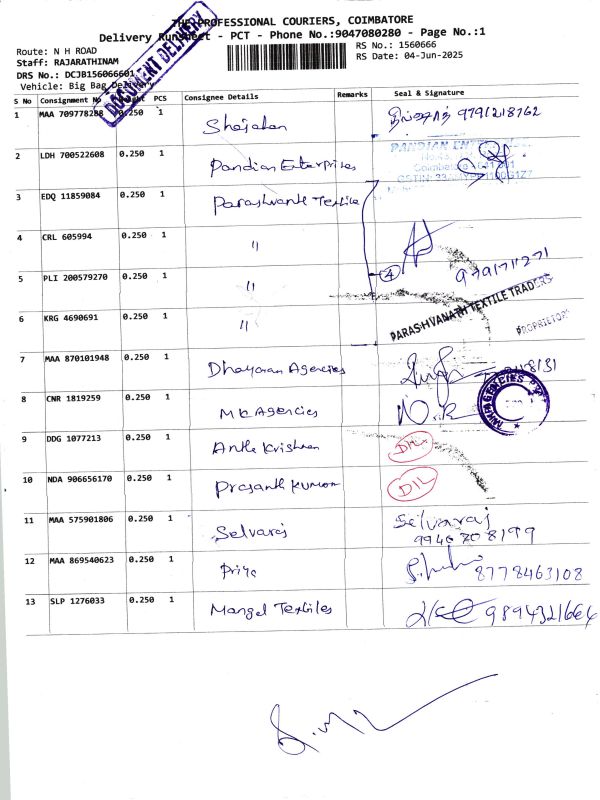 THE PROFESSIONAL COURIERS, COIMBATORE
Delivery Runsheet - PCT - Phone No.:9047080280 - Page No.:1
Route: N H ROAD
RS No.: 1560666
Staff: RAJARATHINAM
RS Date: 04-Jun-2025
DRS No.: DCJB156066601
Vehicle: Big Bag Delivery
DOCUMENT DELIVERY
S No Consignment No Weight PCS Consignee Details Remarks Seal & Signature
1 MAA 709778288 1 Shajahan 9791218762
2 LDH 700522608 0.250 1 Pandian Enterprises PANDIAN ENTERPRISES
3 EDQ 11859084 0.250 1 Parashvanth Textile
4 CRL 605994 0.250 1 〃
5 PLI 200579270 0.250 1 〃 4 9791711271
6 KRG 4690691 0.250 1 〃 PARASHVANATH TEXTILE TRADERS
PROPRIETOR
7 MAA 870101948 0.250 1 Dhayaran Agencies
8 CNR 1819259 0.250 1 MK Agencies
9 DDG 1077213 0.250 1 Krishnan D/L
10 NDA 906656170 0.250 1 Prasanth Kumar D/L
11 MAA 575901806 0.250 1 Selvaraj Selvaraj
12 MAA 869540623 0.250 1 Priya 8778463108
13 SLP 1276033 0.250 1 Mangal Textiles 9894321664